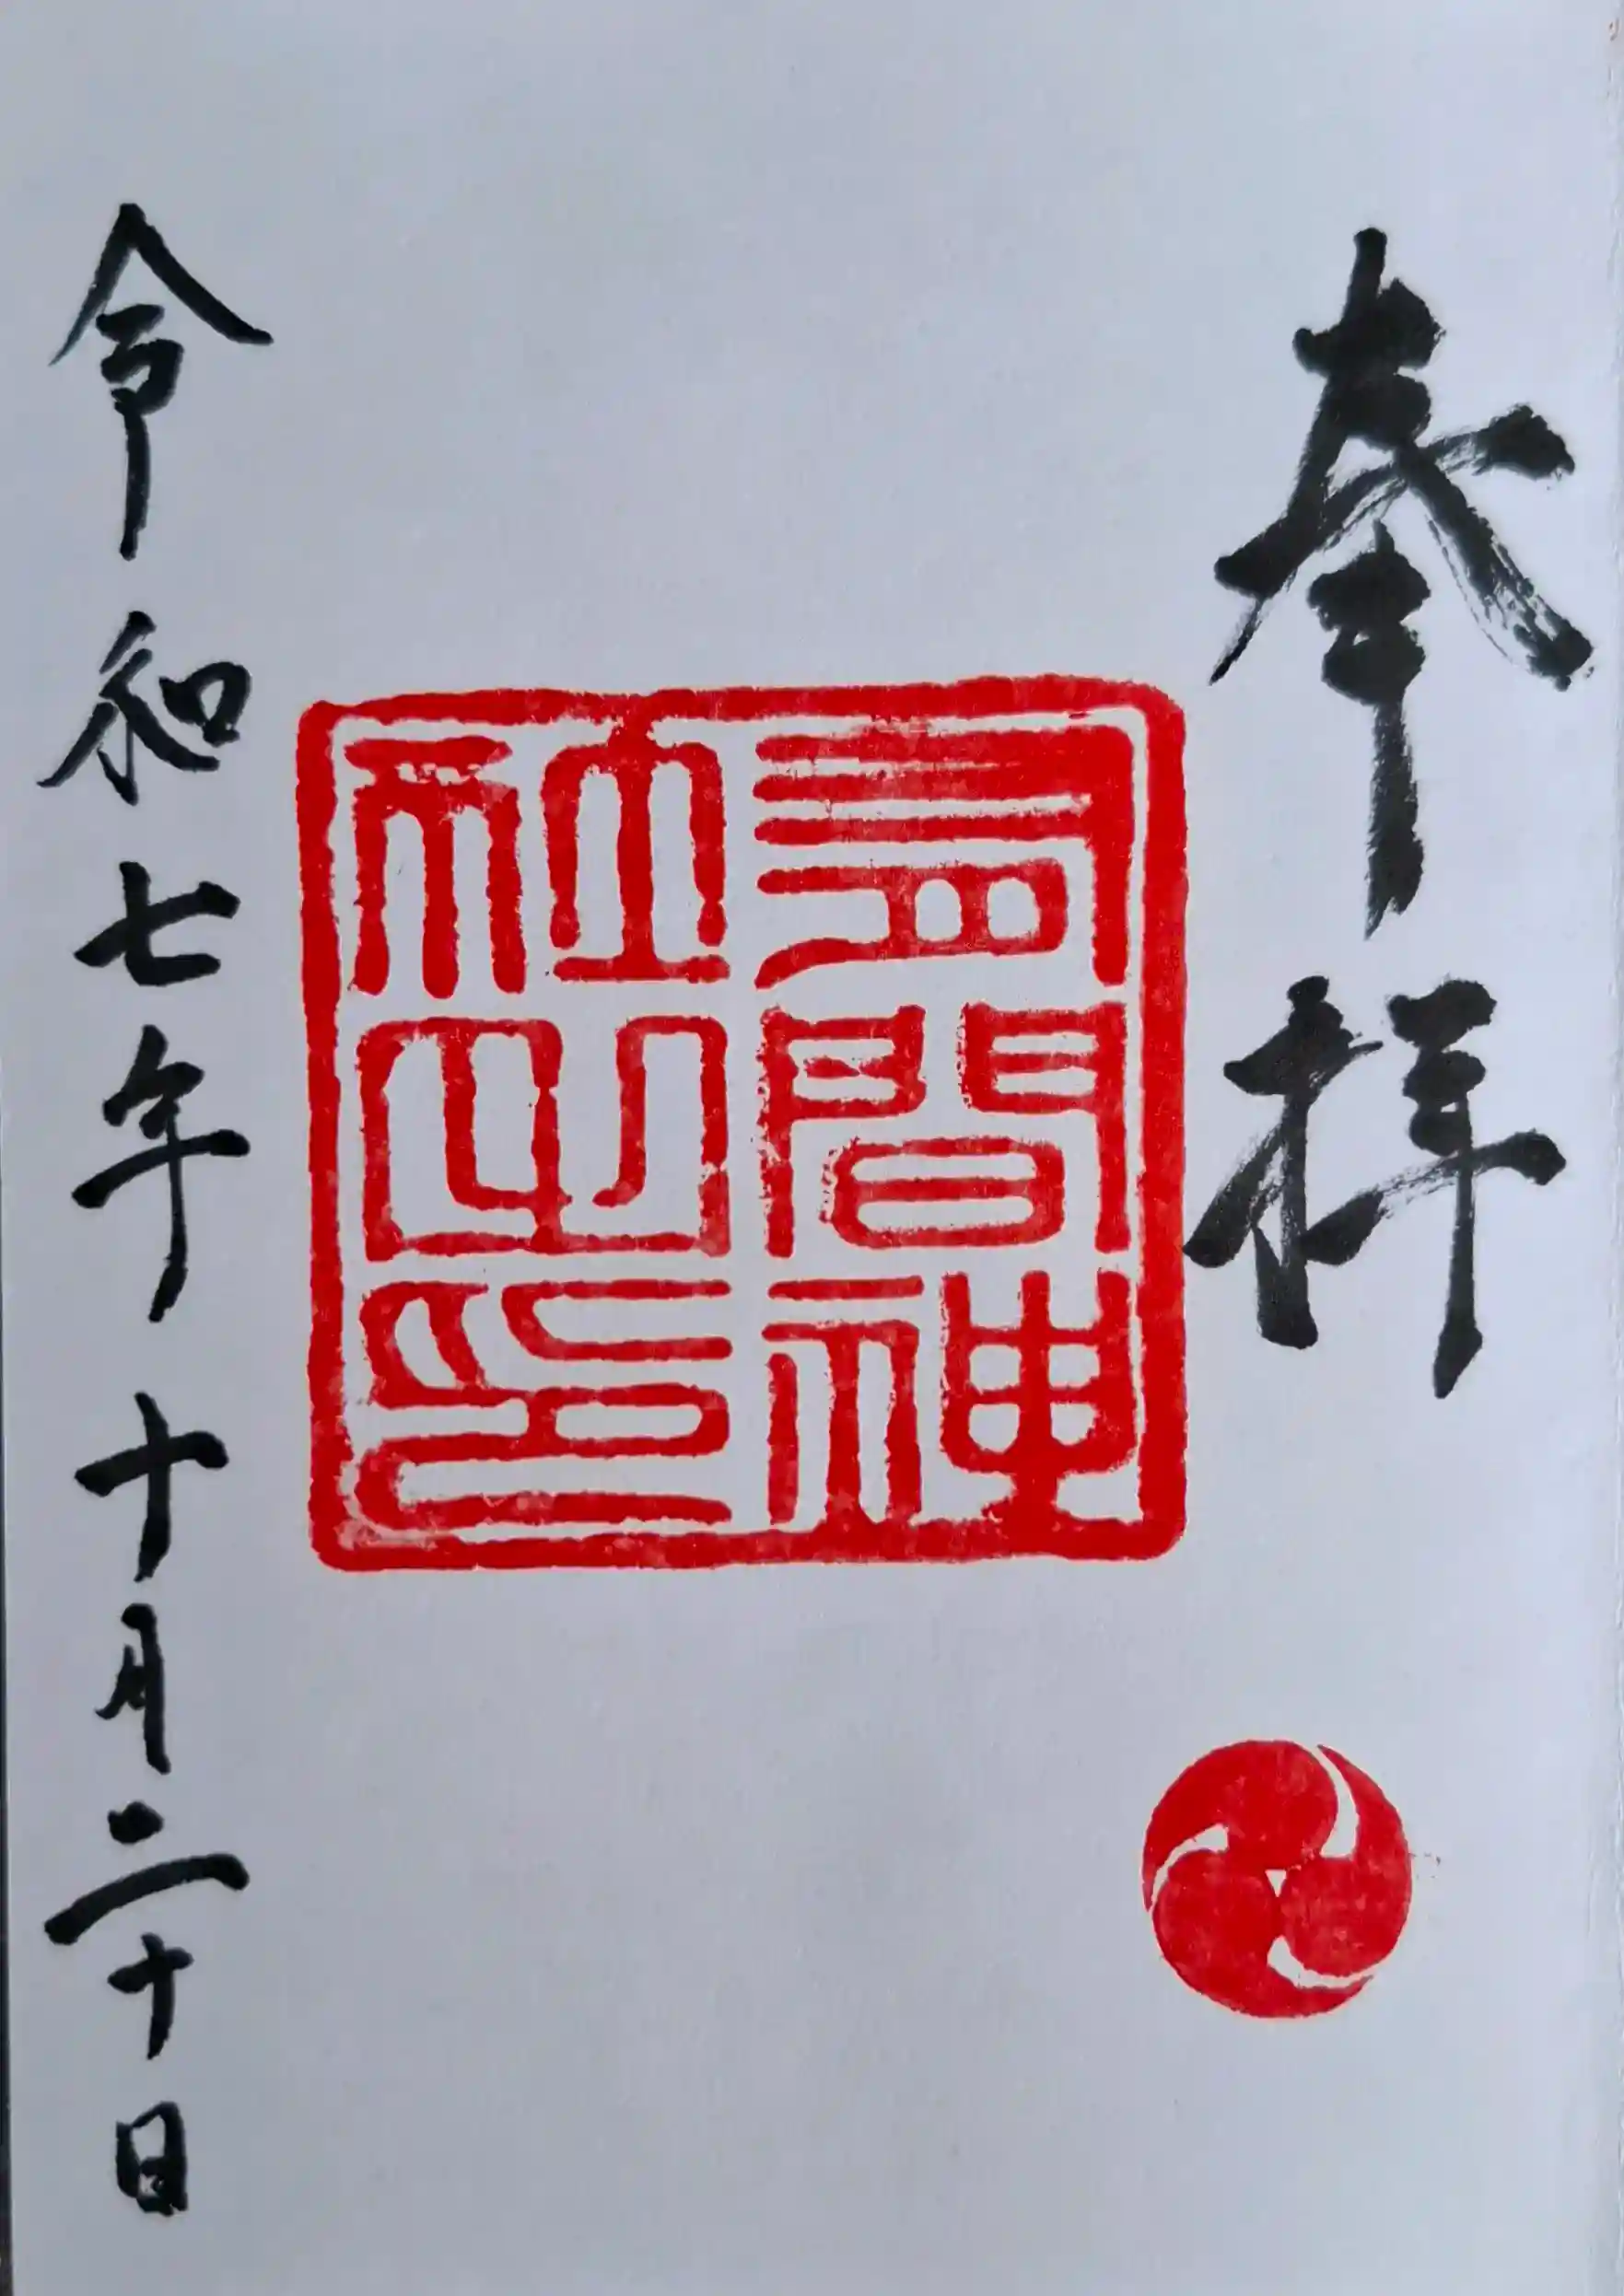 奉拝
間神
社之印
令和七年十月二十日